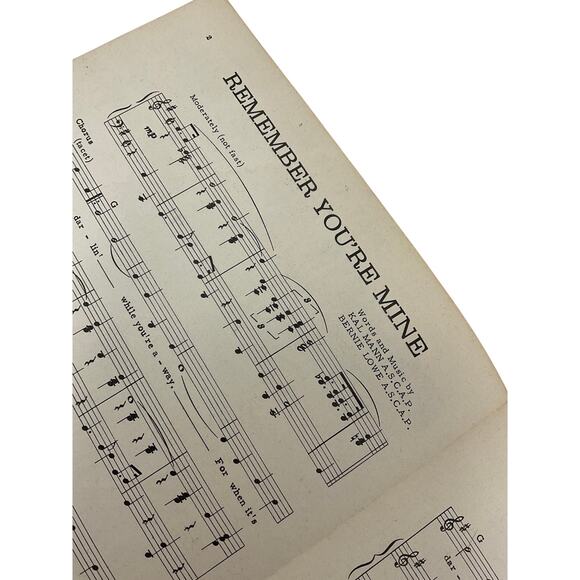 2
REMEMBER YOU'RE MINE
Words and Music by
KAL MANN A.S.C.A.P.
BERNIE LOWE A.S.C.A.P.
Moderately (not fast)
mp
3
3
Chorus
(tacet)
G
dar - lin'
while you're a - way,
For when it's
G
dar